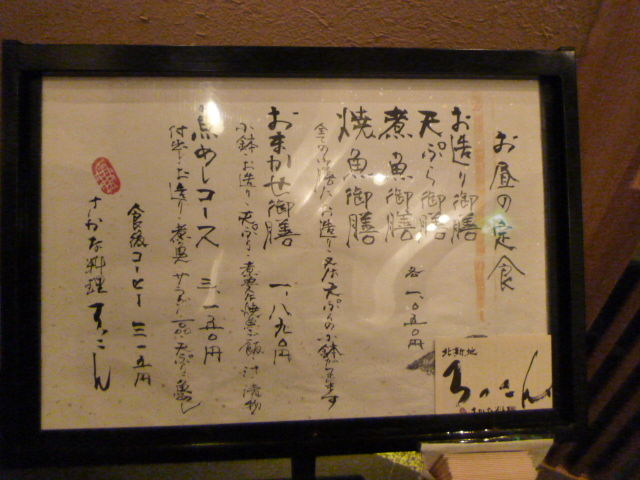 お昼の定食
お造り御膳
天ぷら御膳
煮魚御膳
焼魚御膳
各一、〇五〇円
全ての御膳にお造り又は天ぷらの小鉢が付きます
おまかせ御膳 一、八九〇円
小鉢・お造り・天ぷら・煮魚又は焼魚・御飯・汁・漬物
魚めしコース 三、一五〇円
付出し・お造り・煮魚 サラダ 天ぷら 魚めし
食後コーヒー 三一五円
さかな料理
北新地